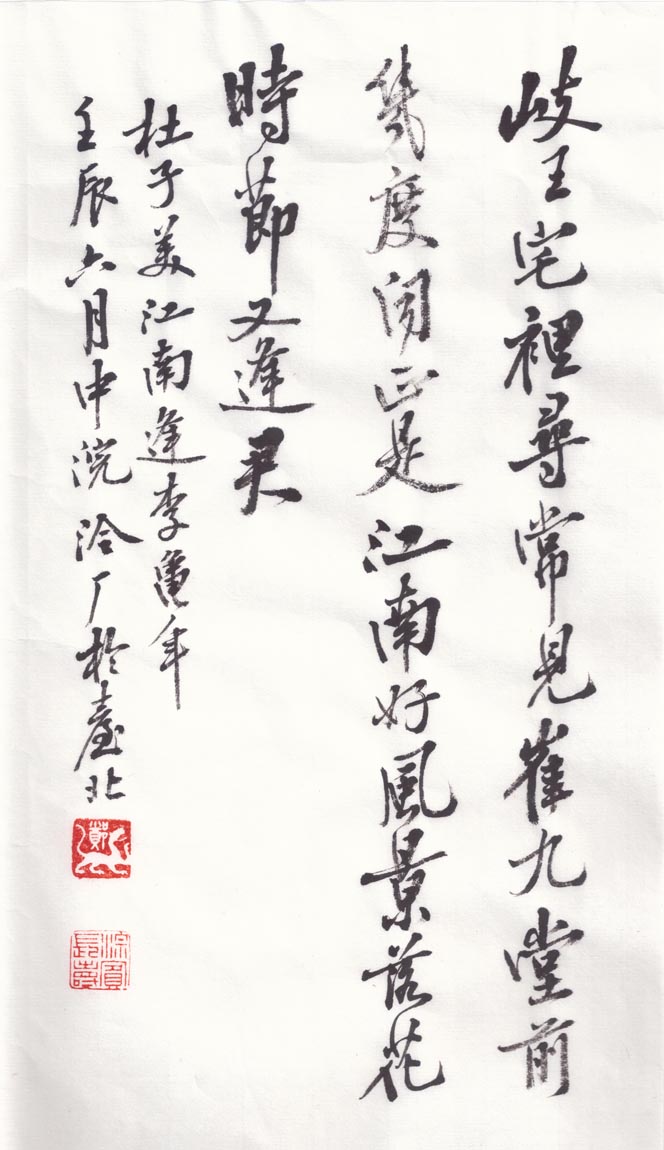 岐王宅裡尋常見崔九堂前
幾度聞正是江南好風景落花
時節又逢君
杜子美江南逢李龜年
壬辰六月中浣泠厂於臺北